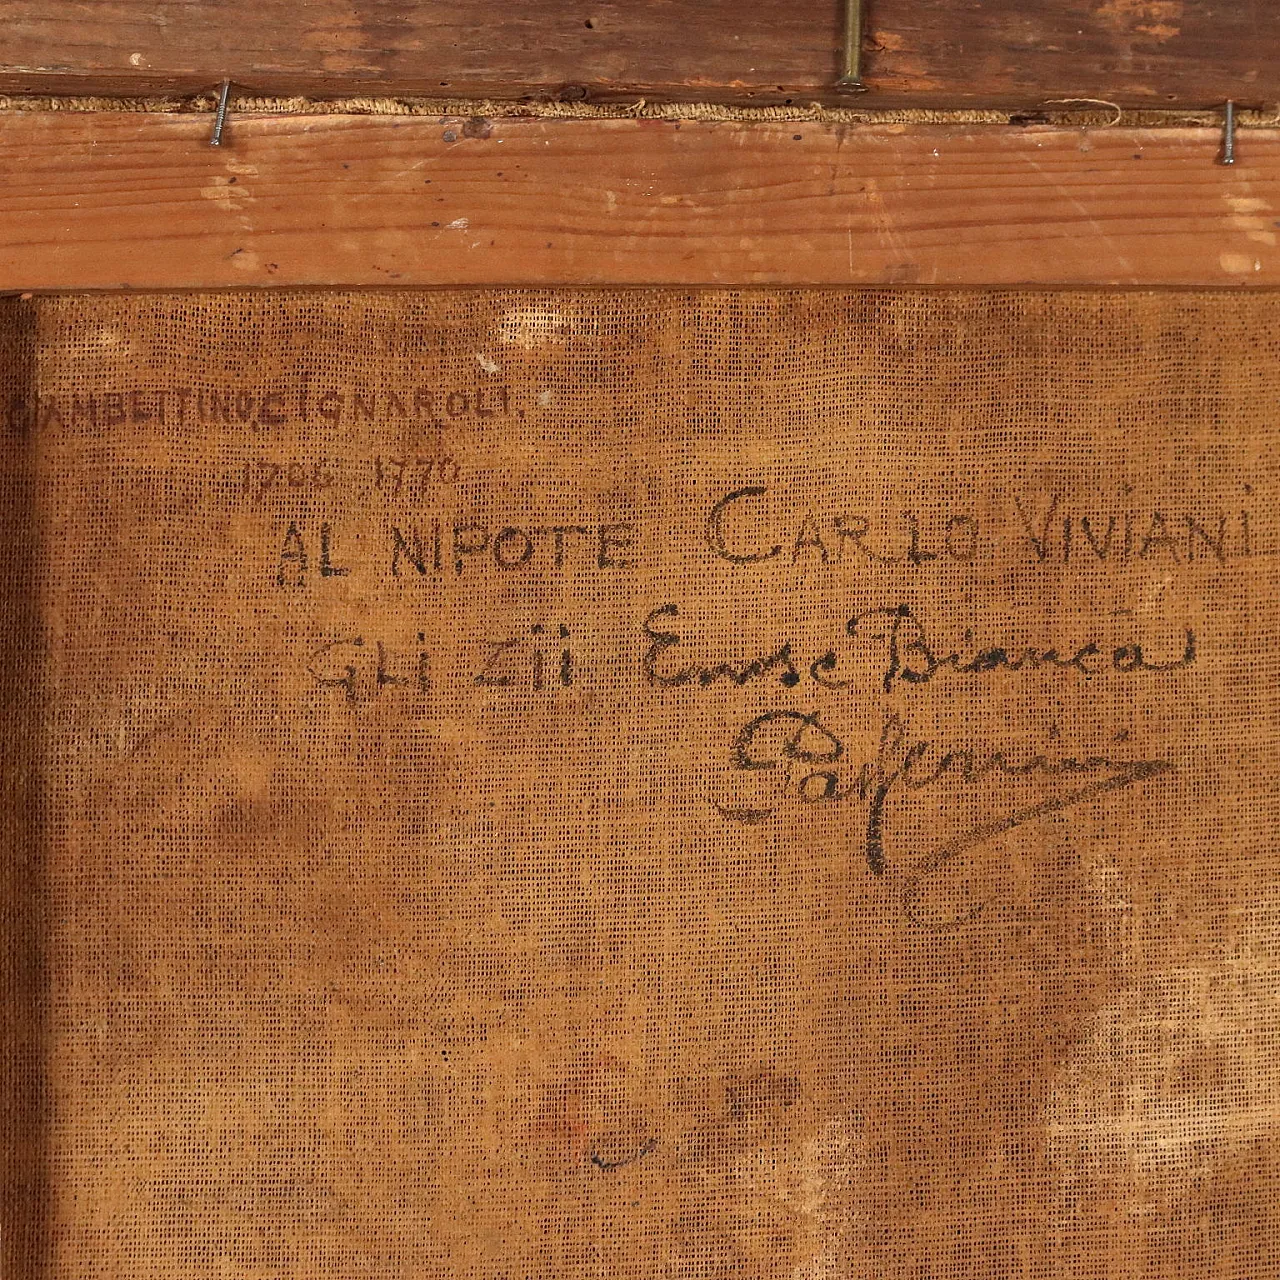 GIAMBETTINO CIGNAROLI.
1706 1770
AL NIPOTE CARLO VIVIANI
GLI ZII Enos e Bianca